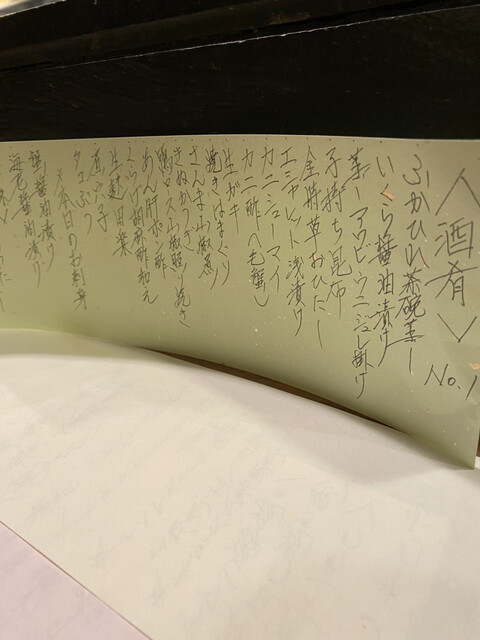 〈酒肴〉
No.1
ふかひれ茶碗蒸し
いくら醤油漬け
蒸しアワビ ウニジュレ掛け
子持ち昆布
金時草おひたし
エシャレット浅漬け
カニシューマイ
カニ酢(毛蟹)
生ガキ
焼きはまぐり
さんま山椒煮
きぬかつぎ
鴨ロース山椒焼き
あん肝ポン酢
胡麻酢和え
生麩田楽
煮穴子
タコぶつ
×本日のお刺身
醤油漬け
海老醤油漬け